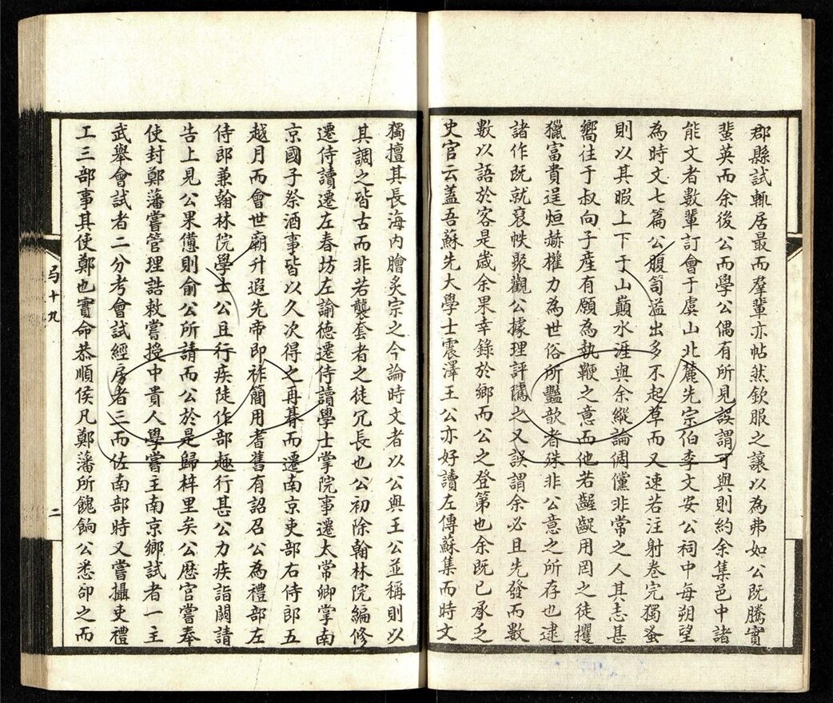 郡縣試輒居最而羣輩亦帖然欽服之讓以為弗如公既騰實
蜚英而余後公而學公偶有所見誤謂可與則約余集邑中諸
能文者數輩訂會于虞山北麓先宗伯李文安公祠中每朔望
為時文七篇公腹笥溢出多不起草而又速若汪射卷完獨蚤
則以其暇上下于山巔水涯與余縱論倜儻非常之人其志甚
嚮往于叔向子產有願為執鞭之意而他若齷齪用罔之徒攫
獵富貴逞烜赫權力為世俗所豔歆者殊非公意之所存也逮
諸作既就裒帙聚觀公據理評隲之又誤謂余必且先發而數
數以語於客是歲余果幸錄於鄉而公之登第也余既已承乏
史官云蓋吾蘇先大學士震澤王公亦好讀左傳蘇集而時文
獨擅其長海內膾炙宗之今論時文者以公與王公並稱則以
其調之皆古而非若襲套者之徒冗長也公初除翰林院編修
遷侍讀遷左春坊左諭德遷侍讀學士掌院事遷太常卿掌南
京國子祭酒事皆以久次得之再朞而遷南京吏部右侍郎五
越月而會世廟升遐先帝即祚簡用耆舊有詔召公為禮部左
侍郎兼翰林院學士公且行疾陡作部趣行甚公力疾詣闕請
告上見公果憊則俞公所請而公於是歸梓里矣公歷官嘗奉
使封鄭藩嘗管理誥敕嘗授中貴人學嘗主南京鄉試者一主
武舉會試者二分考會試經房者三而佐南部時又嘗攝吏禮
工三部事其使鄭也實命恭順侯凡鄭藩所餽餉公悉卻之而
弓十九
二